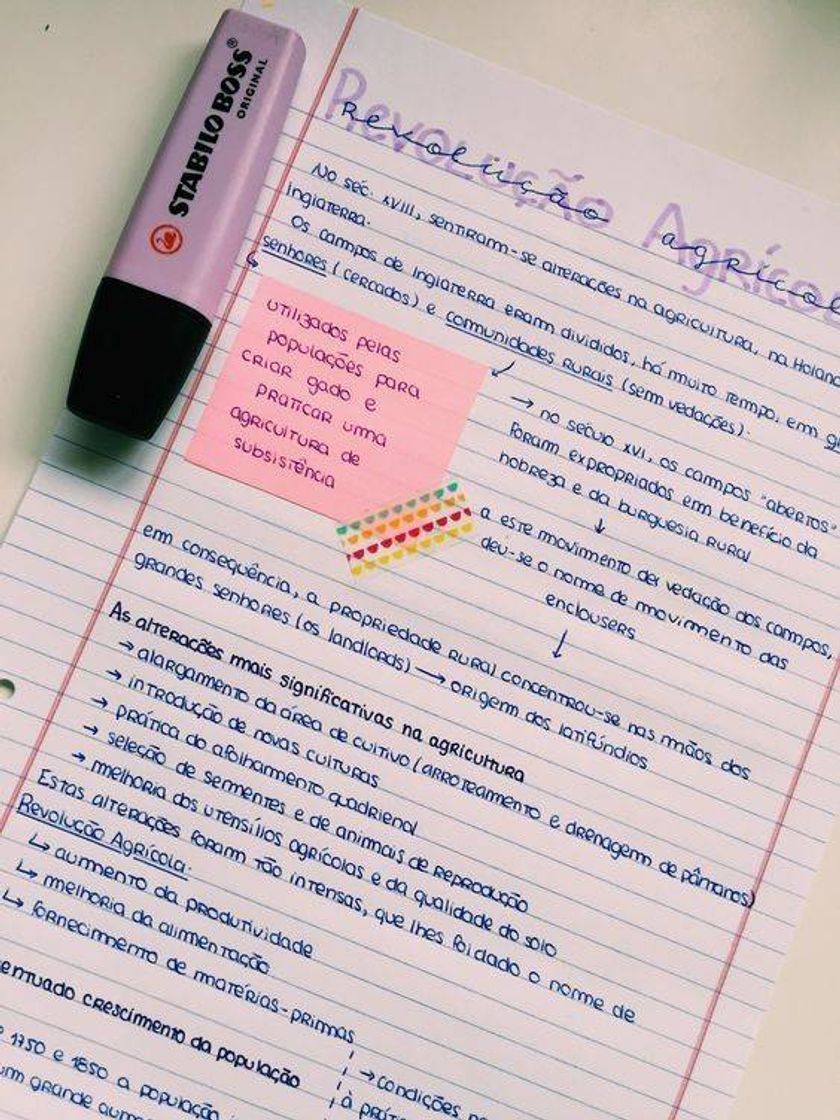 STABILO BOSS®
ORIGINAL
Revolução Agrícol
Revolução agrícol
No séc. XVIII, sentiram-se alterações na agricultura, na Holan
Inglaterra.
Os campos de Inglaterra eram divididos, há muito tempo, em g
senhores (cercados) e comunidades rurais (sem vedações).
utilizados pelas
populações para
criar gado e
praticar uma
agricultura de
subsistência
→ no século XVI, os campos "abertos"
foram expropriados em benefício da
nobreza e da burguesia rural
↓
a este movimento der vedação dos campos,
deu-se o nome de movimento das
enclousers
↓
em consequência, a propriedade rural concentrou-se nas mãos dos
grandes senhores (os landlords) → origem dos latifúndios
As alterações mais significativas na agricultura
→ alargamento da área de cultivo (arroteamento e drenagem de pântanos)
→ introdução de novas culturas
→ prática do afolhamento quadrienal
→ seleção de sementes e de animais de reprodução
→ melhoria dos utensílios agrícolas e da qualidade do solo
Estas alterações foram tão intensas, que lhes foi dado o nome de
Revolução Agrícola.
↳ aumento da produtividade
↳ melhoria da alimentação
↳ fornecimento de matérias-primas
entuado crescimento da população
e 1750 e 1850 a população
um grande aume
→ condições
à prát